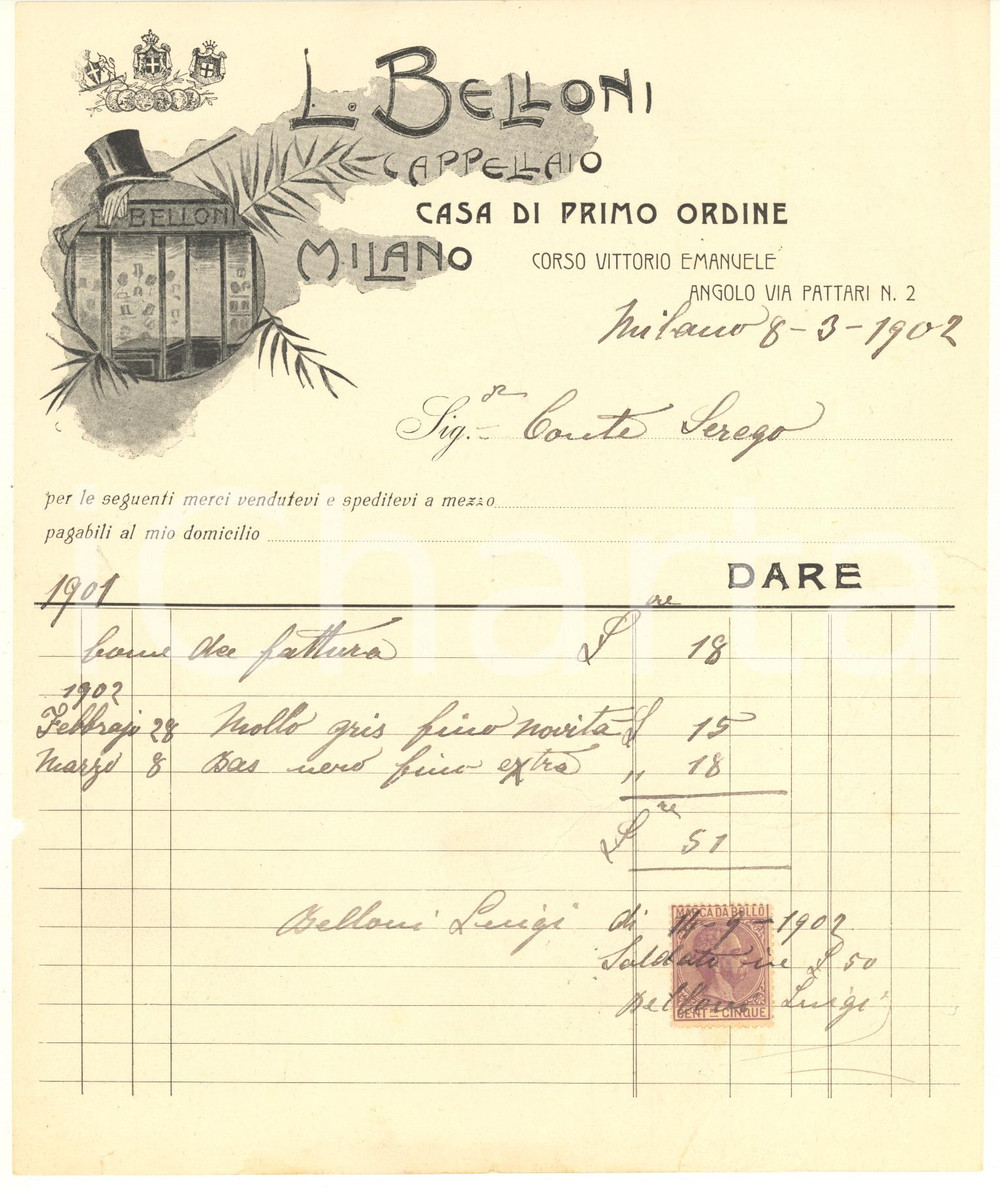 L. BELLONI
CAPPELLAIO
CASA DI PRIMO ORDINE
L. BELLONI
MILANO
CORSO VITTORIO EMANUELE
ANGOLO VIA PATTARI N. 2
Milano 8-3-1902
Sig.r Conte Serego
per le seguenti merci vendutevi e speditevi a mezzo
pagabili al mio domicilio
DARE
1901
come da fattura Lire 18
1902
Febbrajo 28 Mollo gris fino novita L 15
Marzo 8 Bas nero fino extra " 18
Lire 51
Belloni Luigi
di 14-9-1902
Saldato in L 50
Belloni Luigi
MARCA DA BOLLO
CENT.MI CINQUE
iCharta